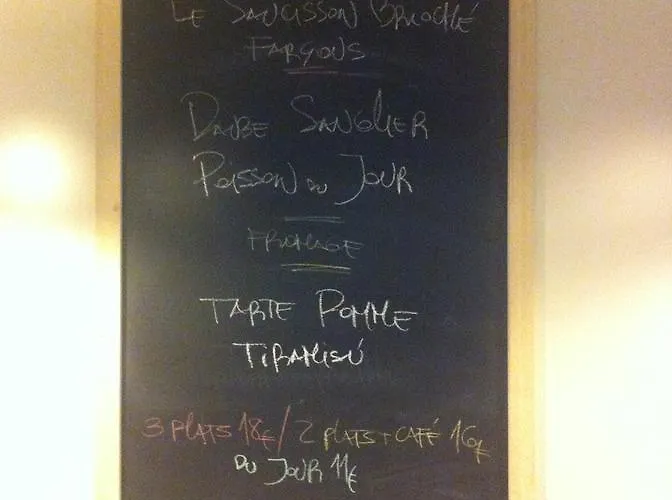 LE SAUCISSON BRIOCHÉ
FARÇOUS
DAUBE SANGLIER
POISSON DU JOUR
FROMAGE
TARTE POMME
TIRAMISÚ
3 PLATS 18€/2 PLATS+CAFÉ 16€
DU JOUR 11€